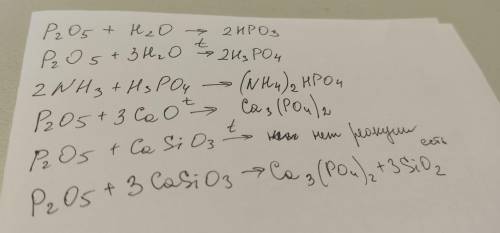 P₂O₅ + H₂O → 2HPO₃
P₂O₅ + 3H₂O →ᵗ 2H₃PO₄
2NH₃ + H₃PO₄ → (NH₄)₂HPO₄
P₂O₅ + 3CaO →ᵗ Ca₃(PO₄)₂
P₂O₅ + CaSiO₃ →ᵗ нет реакции есть
P₂O₅ + 3CaSiO₃ → Ca₃(PO₄)₂ + 3SiO₂